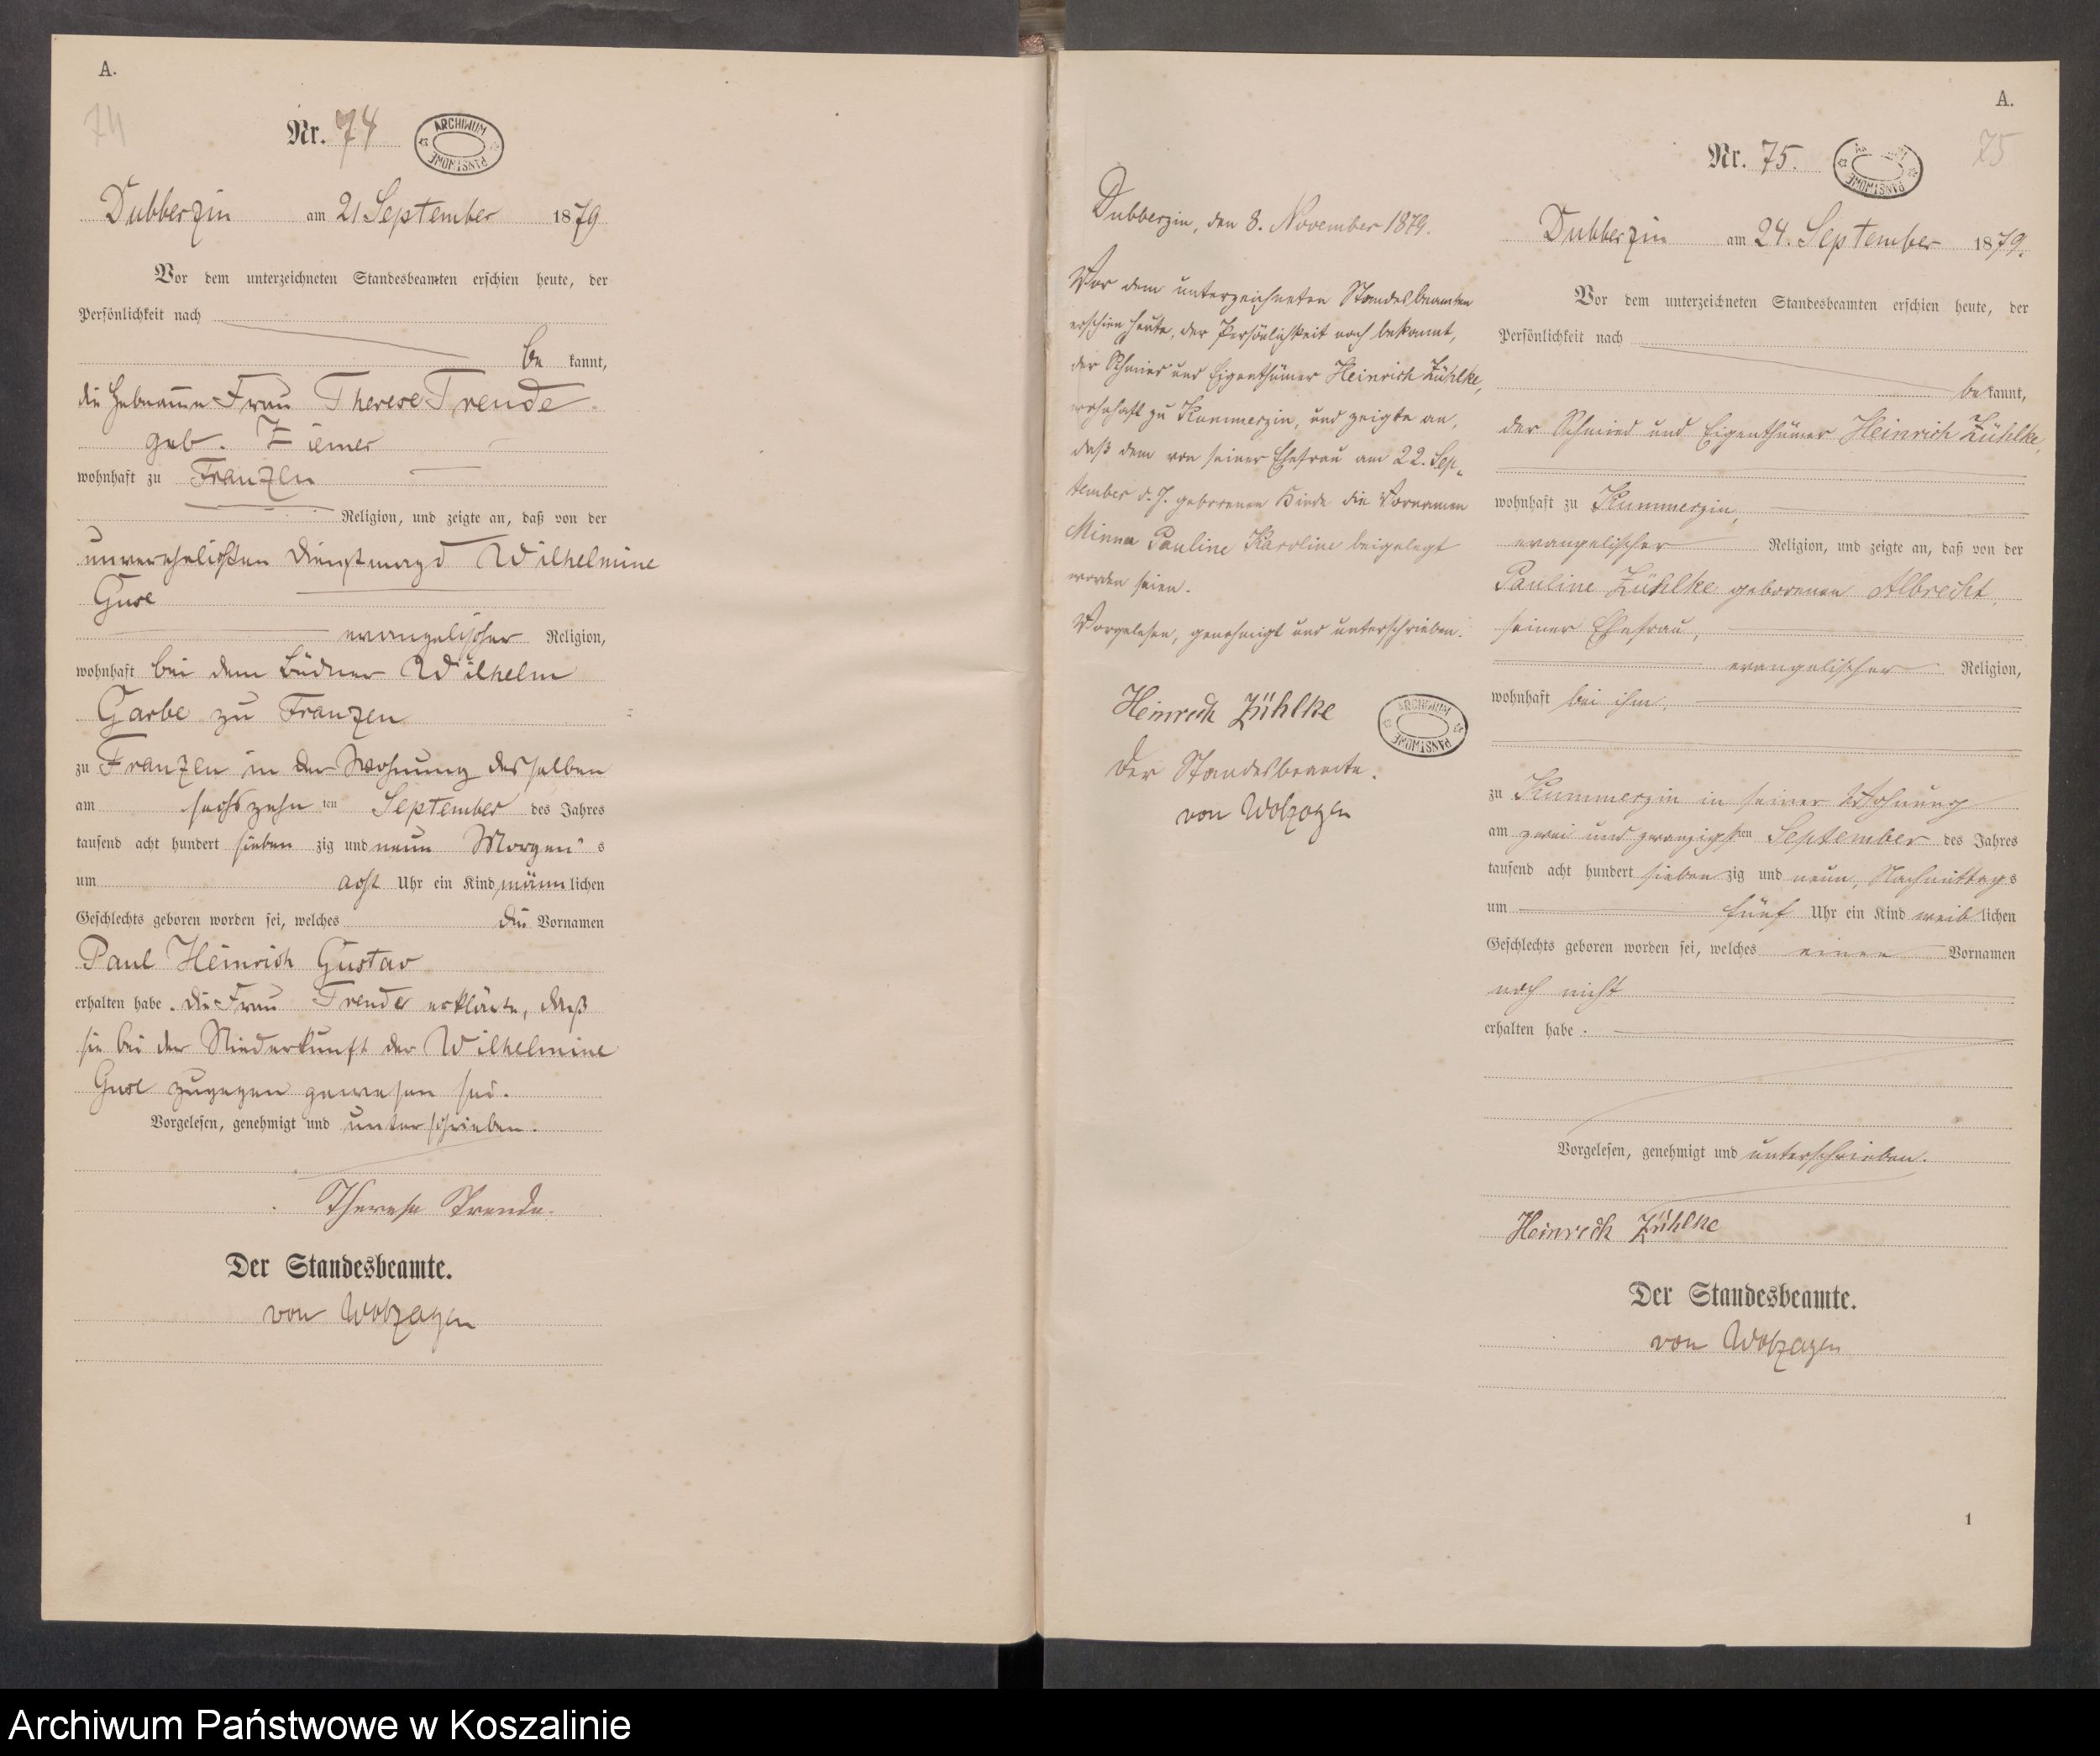 A.
74
Nr. 74
ARCHIWUM
PAŃSTWOWE
Dubberzin am 21 September 1879
Vor dem unterzeichneten Standesbeamten erschien heute, der
Persönlichkeit nach
be kannt,
die Hebeamme Frau Therese Trende
geb. Ziemer
wohnhaft zu Franzen
Religion, und zeigte an, daß von der
unverehelichten Dienstmagd Wilhelmine
Guse
evangelischer Religion,
wohnhaft bei dem Büdner Wilhelm
Garbe zu Franzen
zu Franzen in der Wohnung desselben
am sechszehn ten September des Jahres
tausend acht hundert sieben zig und neun Morgen s
um acht Uhr ein Kind männ lichen
Geschlechts geboren worden sei, welches die Vornamen
Paul Heinrich Gustav
erhalten habe. Die Frau Trende erklärte, daß
sie bei der Niederkunft der Wilhelmine
Guse zugegen gewesen sei.
Vorgelesen, genehmigt und unterschrieben.
Therese Trende.
Der Standesbeamte.
von Wolzogen
Dubberzin, den 8. November 1879.
Vor dem unterzeichneten Standesbeamten
erschien heute, der Persönlichkeit nach bekannt,
der Schmied und Eigenthümer Heinrich Zühlke,
wohnhaft zu Kummerzin, und zeigte an,
daß dem von seiner Ehefrau am 22. Sep-
tember d. J. geborenen Kinde die Vornamen
Minna Pauline Karoline beigelegt
worden seien.
Vorgelesen, genehmigt und unterschrieben.
Heinrich Zühlke
ARCHIWUM
PAŃSTWOWE
Der Standesbeamte.
von Wolzogen
A.
75
Nr. 75.
PAŃSTWOWE
Dubberzin am 24. September 1879.
Vor dem unterzeichneten Standesbeamten erschien heute, der
Persönlichkeit nach
be kannt,
der Schmied und Eigenthümer Heinrich Zühlke,
wohnhaft zu Kummerzin,
evangelischer Religion, und zeigte an, daß von der
Pauline Zühlke geborenen Albrecht,
seiner Ehefrau,
evangelischer Religion,
wohnhaft bei ihm,
zu Kummerzin in seiner Wohnung
am zwei und zwanzigsten September des Jahres
tausend acht hundert sieben zig und neun, Nachmittag s
um fünf Uhr ein Kind weib lichen
Geschlechts geboren worden sei, welches einen Vornamen
noch nicht
erhalten habe.
Vorgelesen, genehmigt und unterschrieben.
Heinrich Zühlke
Der Standesbeamte.
von Wolzogen
1
Archiwum Państwowe w Koszalinie